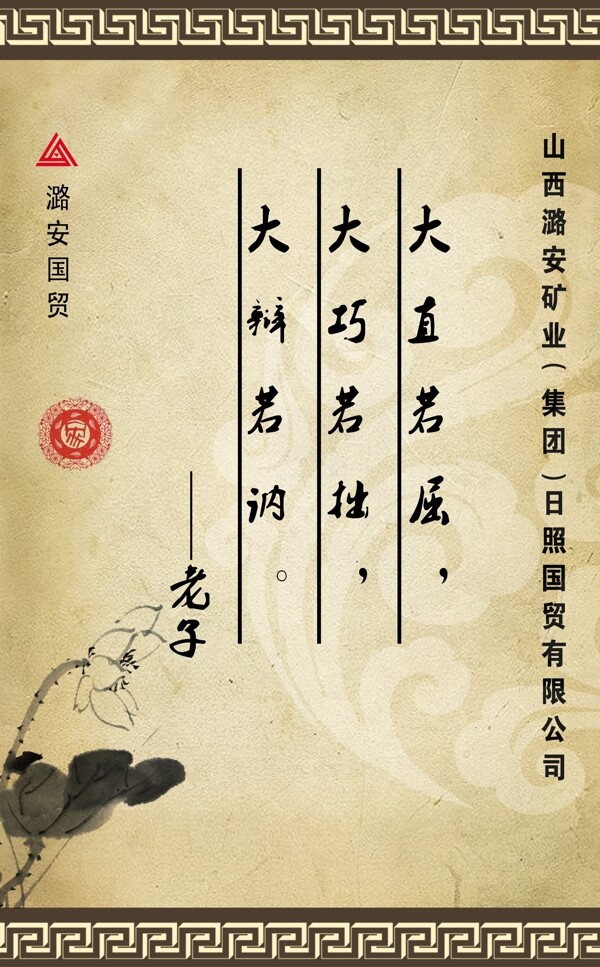 山西潞安矿业（集团）日照国贸有限公司
大直若屈，
大巧若拙，
大辩若讷。
——老子
潞安国贸